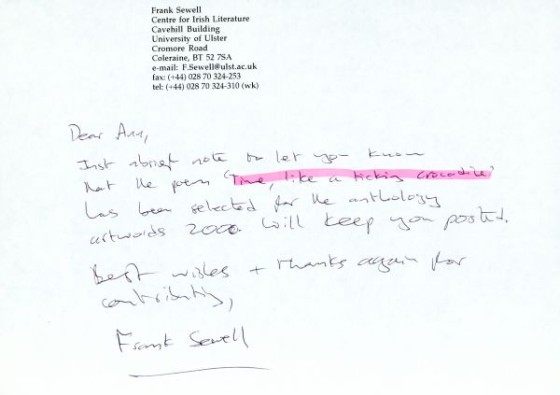 Frank Sewell
Centre for Irish Literature
Cavehill Building
University of Ulster
Cromore Road
Coleraine, BT 52 7SA
e-mail: F.Sewell@ulst.ac.uk
fax: (+44) 028 70 324-253
tel: (+44) 028 70 324-310 (wk)
Dear Ann,
Just a brief note to let you know
that the poem 'Time, like a ticking crocodile'
has been selected for the anthology
artwords 2000. Will keep you posted.
Best wishes + thanks again for
contributing,
Frank Sewell